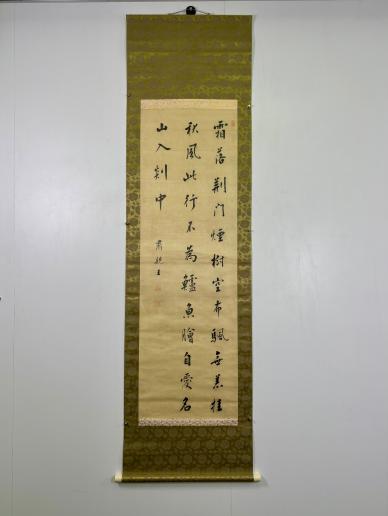 霜落荆門煙樹空布颿無恙挂
秋風此行不為鱸魚膾自愛名
山入剡中
肅親王